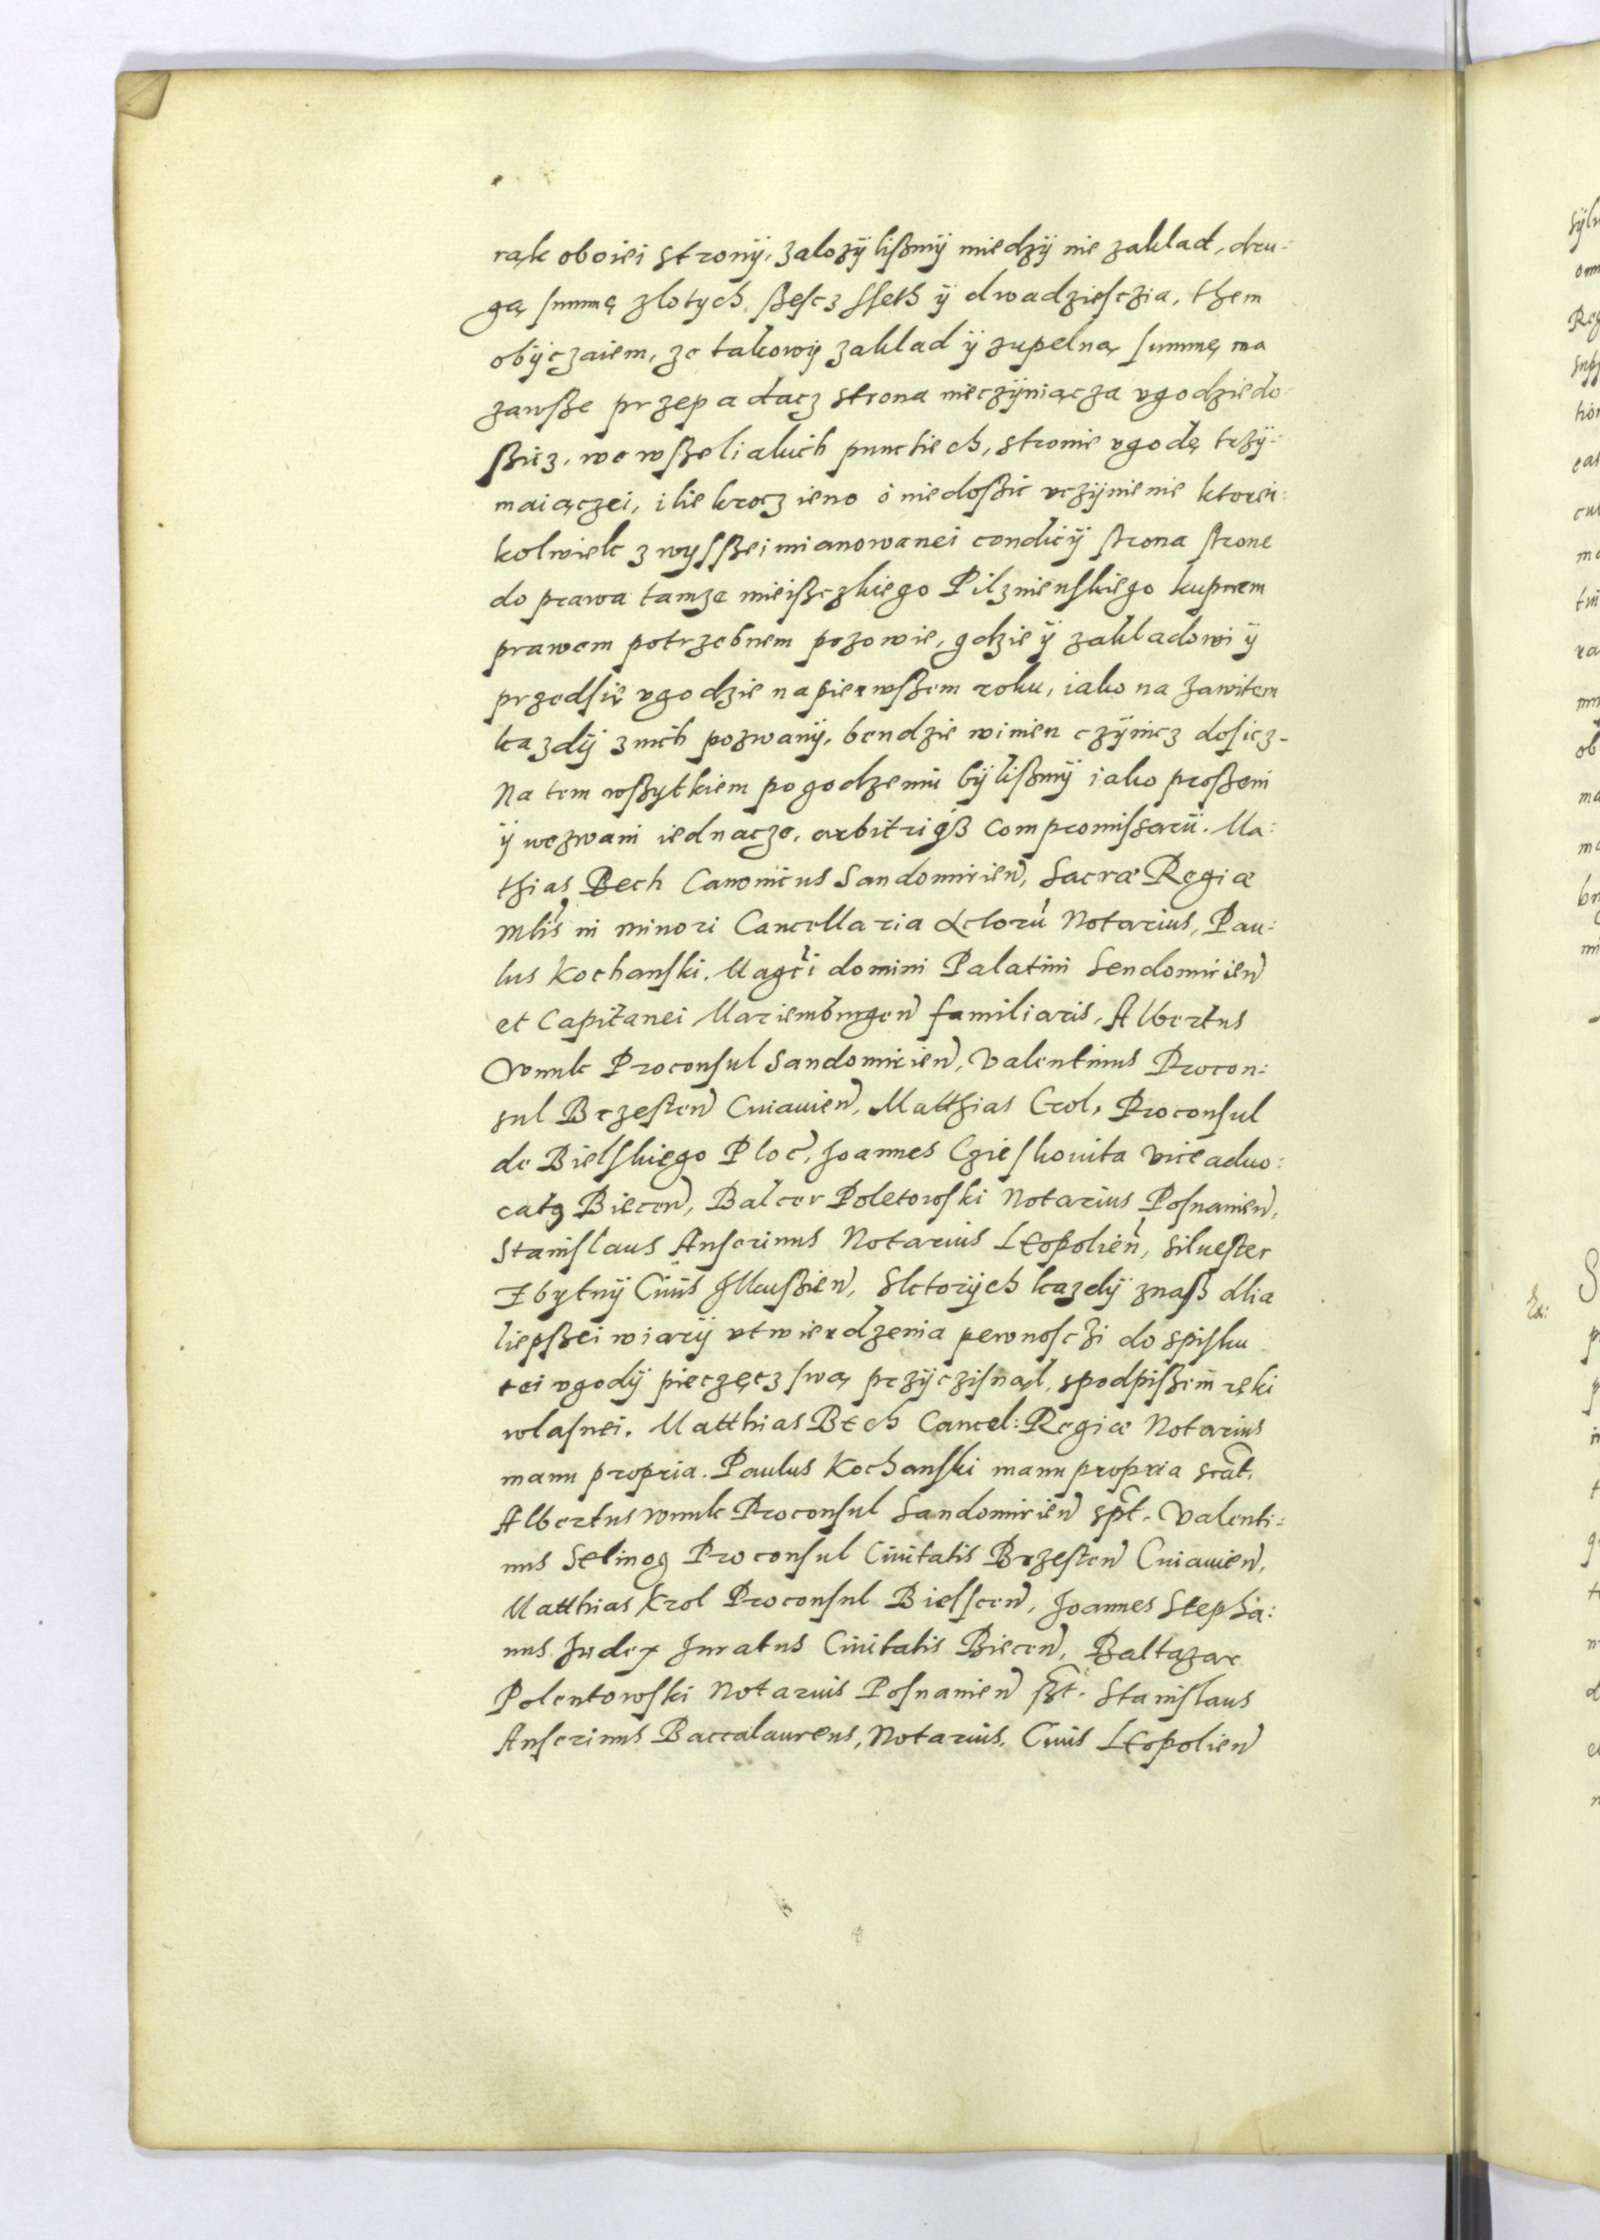 rąk oboiei stronÿ, zalozÿlißmÿ miedzÿ nie zaklad, dru:
gą summę zlotych, ßescz sseth ÿ dwadziesczia, them
obÿczaiem, ze takowÿ zaklad ÿ zupelną summę ma
zawße przepadacz strona nieczÿniącza vgodzie do
ßicz, we wßeliakich punctiech, stronie vgodę trzÿ:
maiączei, ilie krocz ieno o niedoßic vczÿnienie ktorei:
kolwiek z wysßei mianowanei condiciÿ strona strone
do prawa tamze mieißczkiego Pilznienskiego kupnem
prawem potrzebnem pozowie, gdzie ÿ zakladowi ÿ
przedsię vgodzie na pierwßem roku, iako na zawitem
kazdÿ z nich pozwanÿ, bendzie winien czÿnicz dosicz.
Na tem wßytkiem pogodzeniu bÿlißmÿ iako proßeni
ÿ wezwani iednacze, arbitri qß compromissarii. Ma:
thias Bech Canonicus Sandomirien, Sacræ Regiæ
Mtis in minori Cancellaria Actoru Notarius, Pau:
lus Kochanski. Magci domini Palatini Sendomirien
et Capitanei Mariemburgen familiaris, Albertus
Wnuk Proconsul Sandomirien, Valentinus Procon:
sul Brzesten Cuiauien, Matthias Crol, Proconsul
de Bielskiego Ploc, Joannes Cgieskouita viceaduo:
catq Biecen, Balcer Poletowski Notarius Posnanien,
Stanislaus Anserinus Notarius Leopolien, Siluester
Zbytnÿ Ciuis Jlkussien, Sktorÿch kazdÿ znaß dlia
liepßei wiarÿ vtwierdzenia pewnosczi do spisku
tei vgodÿ pieczęcz swą przÿczisnął, spodpißem ręki
wlasnei. Matthias Bech Cancel: Regiæ Notarius
manu propria. Paulus Kochanski manu propria scat.
Albertus Wnuk Proconsul Sandomirien spt. Valenti:
nus Selinog Proconsul Ciuitatis Brzesten Cuiauien,
Matthias Krol Proconsul Bielscen, Joannes Stepha:
nus Judex Juratus Ciuitatis Biecen, Baltazar
Polentowski Notarius Posnanien sst. Stanislaus
Anserinus Baccalaureus, Notarius, Ciuis Leopolien